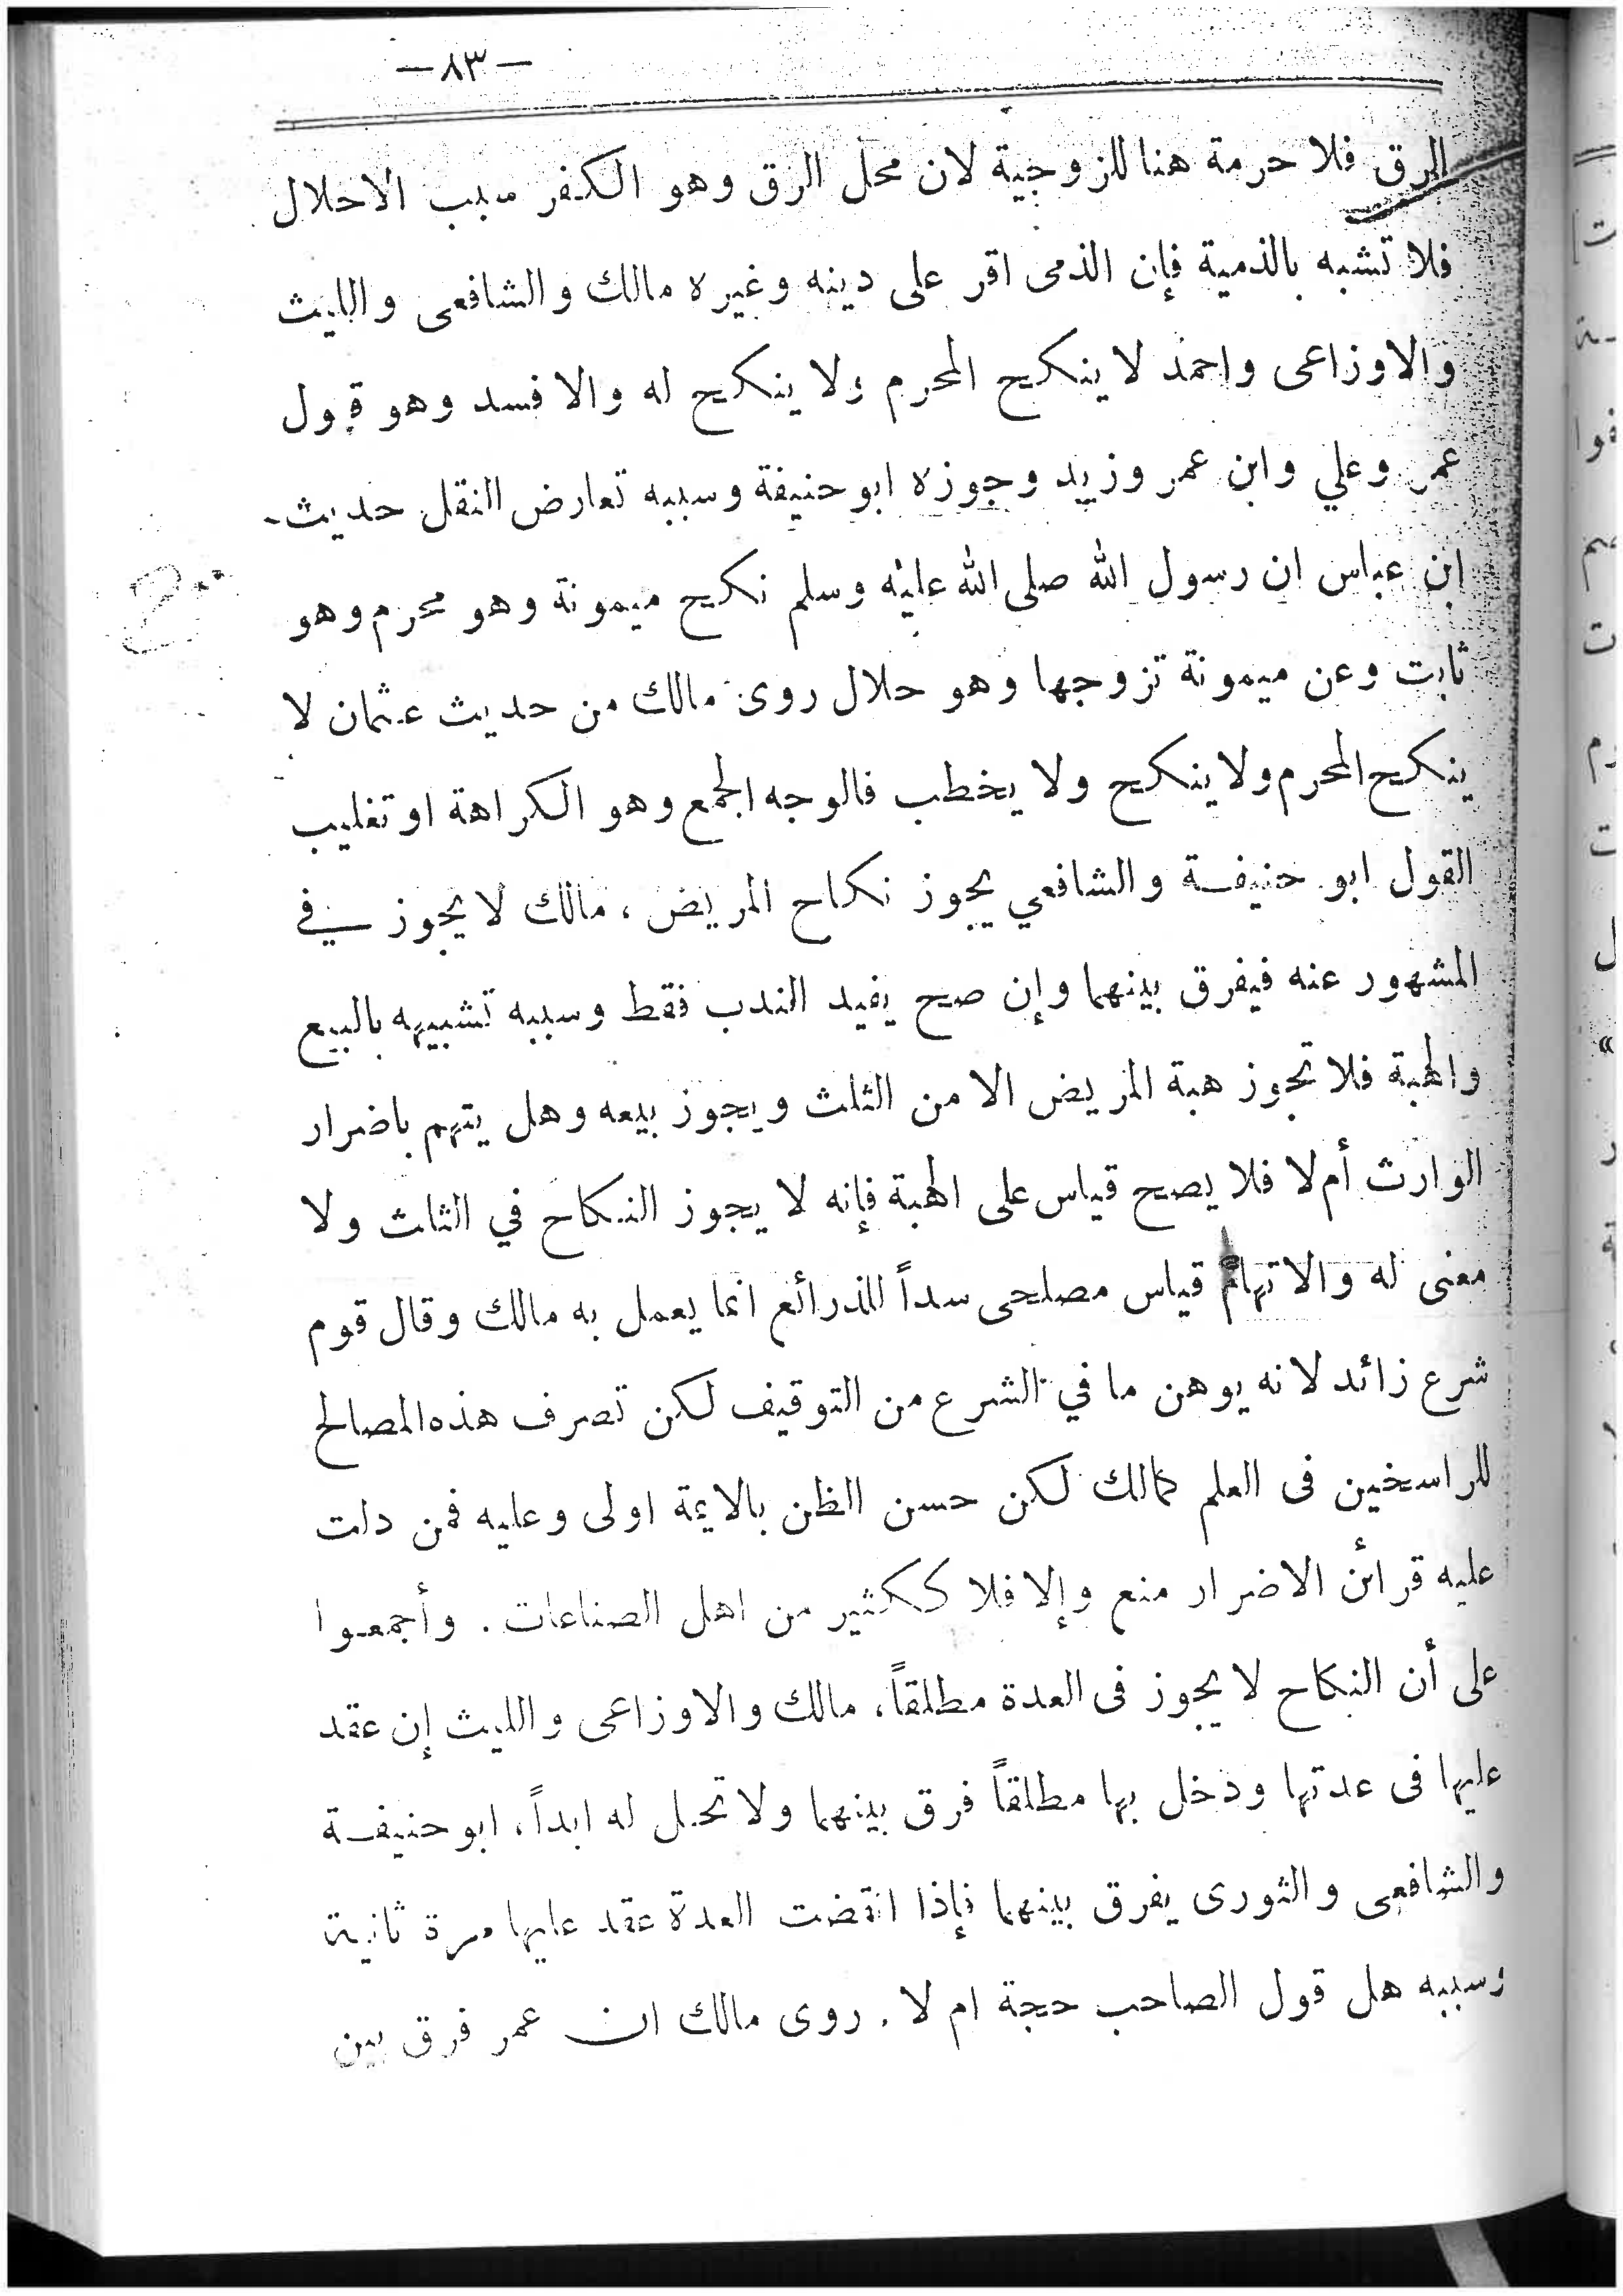 — ٨٣ —
الرق فلا حرمة هنا للزوجية لان محل الرق وهو الكفر سبب الاحلال
فلا تشبه بالذمية فإن الذمى اقر على دينه وغيره مالك والشافعى والليث
والاوزاعى واحمد لا ينكح المحرم ولا ينكح له والا فسد وهو قول
عمر وعلي وابن عمر وزيد وجوزه ابو حنيفة وسببه تعارض النقل حديث
ابن عباس ان رسول الله صلى الله عليه وسلم نكح ميمونة وهو محرم وهو
ثابت وعن ميمونة تزوجها وهو حلال روى مالك من حديث عثمان لا
ينكح المحرم ولا ينكح ولا يخطب فالوجه الجمع وهو الكراهة او تغليب
القول ابو حنيفة والشافعي يجوز نكاح المريض ، مالك لا يجوز في
المشهور عنه فيفرق بينهما وإن صح يفيد الندب فقط وسببه تشبيهه بالبيع
والهبة فلا تجوز هبة المريض الا من الثلث ويجوز بيعه وهل يتهم باضرار
الوارث أم لا فلا يصح قياس على الهبة فإنه لا يجوز النكاح في الثلث ولا
معنى له والاتهام قياس مصلحى سداً للذرائع انما يعمل به مالك وقال قوم
شرع زائد لانه يوهن ما في الشرع من التوقيف لكن تصرف هذه المصالح
للراسخين فى العلم كمالك لكن حسن الظن بالايمة اولى وعليه فمن دلت
عليه قرائن الاضرار منع وإلا فلا ككثير من اهل الصناعات . وأجمعوا
على أن النكاح لا يجوز فى العدة مطلقاً ، مالك والاوزاعى والليث إن عقد
عليها فى عدتها ودخل بها مطلقاً فرق بينهما ولا تحل له ابداً ، ابو حنيفة
والشافعى والثورى يفرق بينهما فإذا انقضت العدة عقد عليها مرة ثانية
وسببه هل قول الصاحب حجة ام لا . روى مالك ان عمر فرق بين